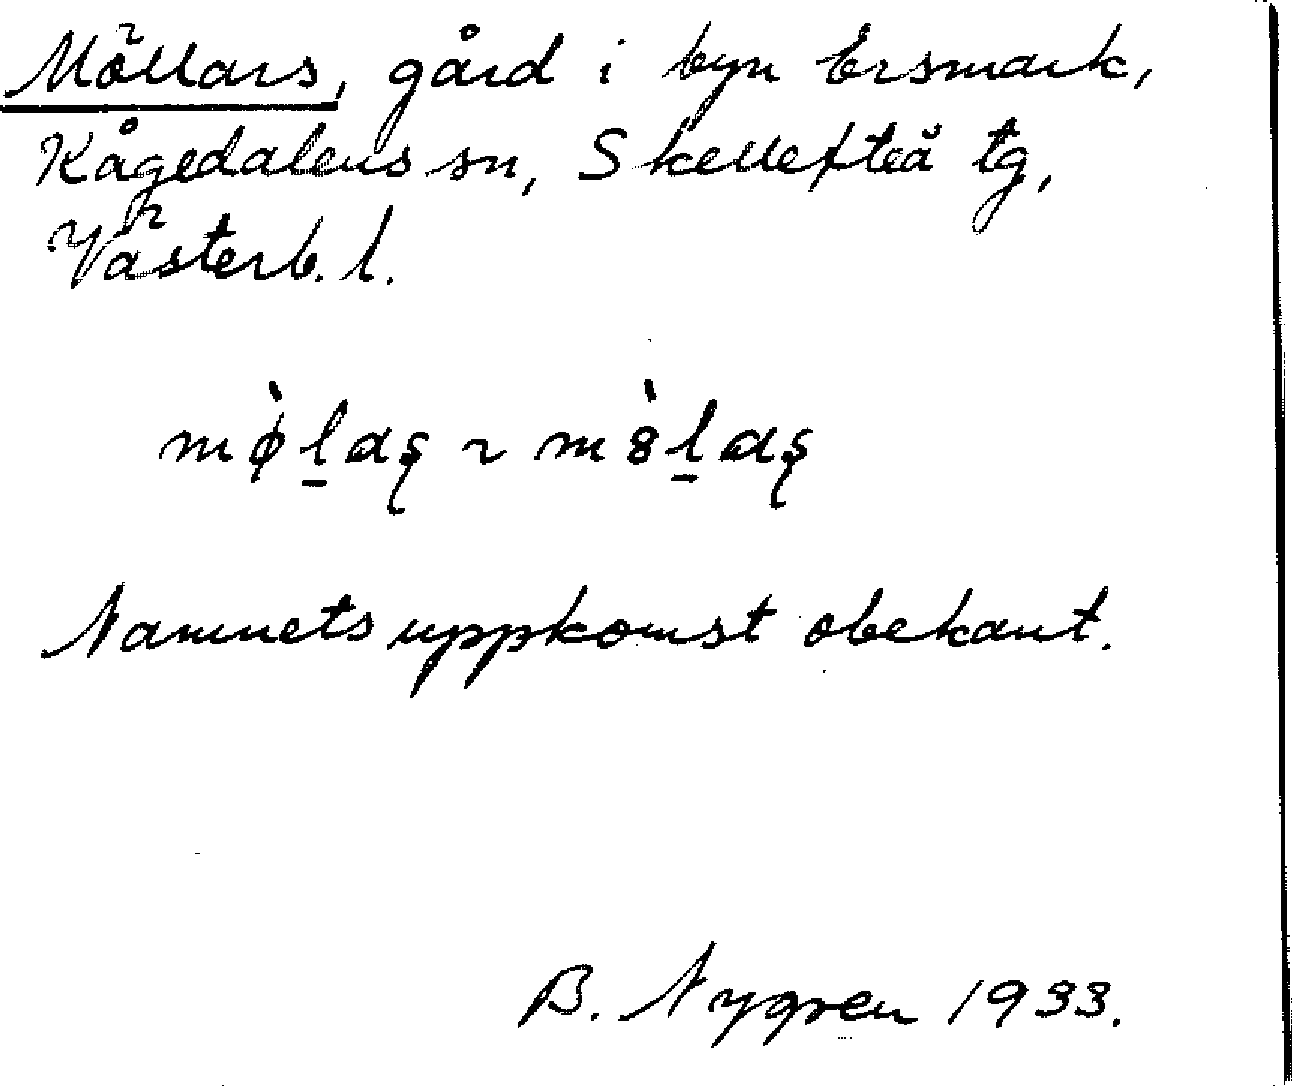 Möllars, gård i byn Ersmark,
Kågedalens sn, Skellefteå tg,
Västerb. l.
mø̀l̲aʂ ~ m8̀l̲aʂ
Namnets uppkomst obekant.
B. Nygren 1933.